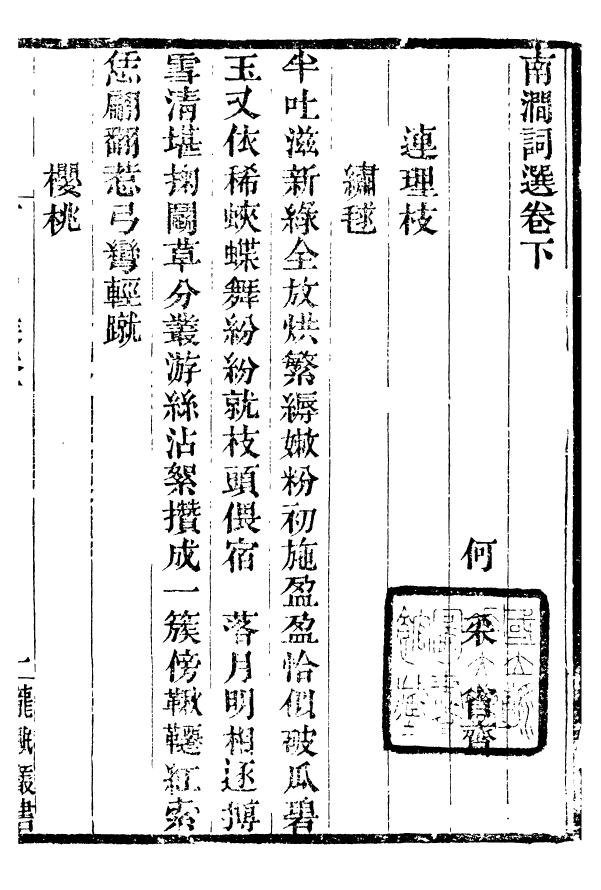 南澗詞選卷下
何 采 省齋
連理枝
繡毬
半吐滋新綠全放烘繁縟嫩粉初施盈盈恰似破瓜碧
玉又依稀蛺蝶舞紛紛就枝頭偎宿 落月明相逐摶
雪清堪掬鬬草分叢游絲沾絮攢成一簇傍鞦韆紅索
恁翩翻惹弓彎輕蹴
櫻桃